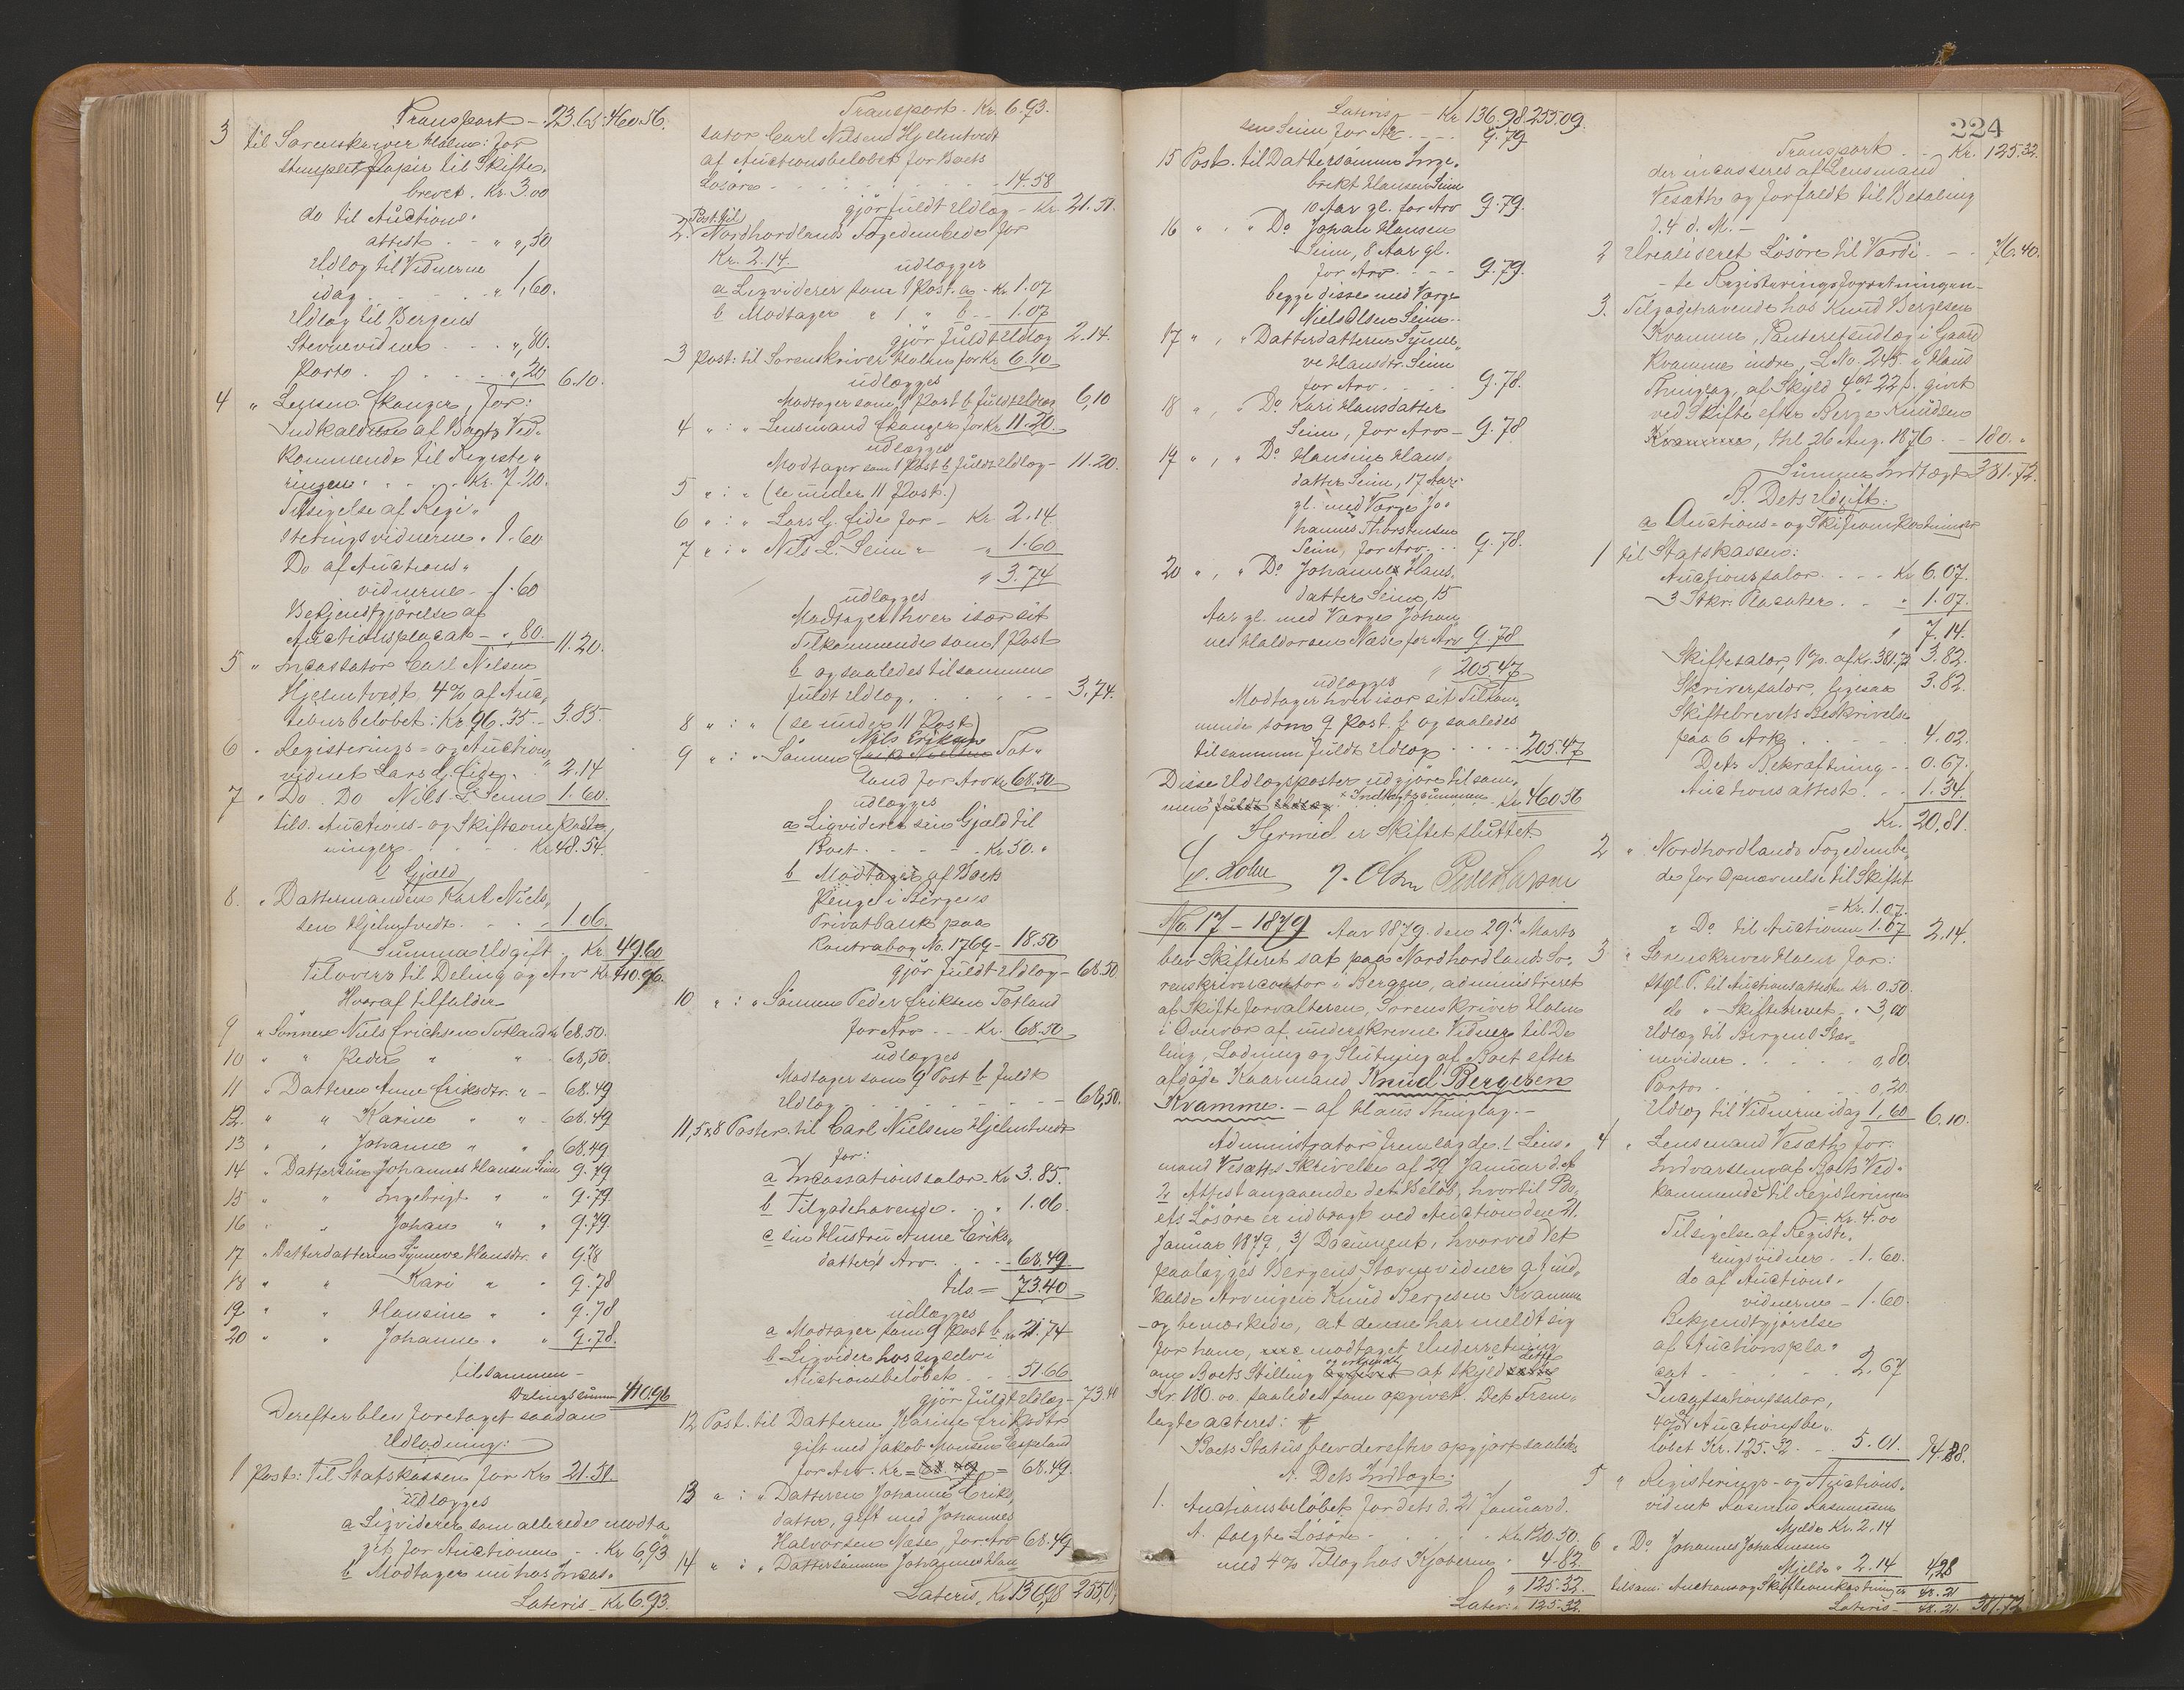 Transport - 23.65 460.56.
3 til Sorenskriver Holm: for
stemplet Papir til Skifte-
brevet. Kr. 3.00
do til Auctions-
attest - " ",50
Udlæg til Vidnerne
idag " 1,60.
Udlæg til Bergens
Stevnevidner ",80.
Porto ",20 6.10.
4 " Lensm. Skanger, for:
Indkaldelse af Boets Ved-
kommende til Registe-
ringen Kr. 7.20.
Tilsigelse af Regi-
streringsvidnerne " 1.60
Do af Auctions-
vidnerne - 1.60
Bekjendtgjörelse af
Auctionsplacat - ",80. 11.20.
5 " Incassator Carl Nilsen
Hjelmtvedt, 4% af Auc-
tionsbelöbet: Kr 96.35 - 3.85.
6 " Registerings- og Auctions-
vidnet Lars G. Eide. " 2.14
7 " Do Do Nils L. Seim 1.60.
tils. Auctions- og Skifteomkost-
ninger Kr 48.54.
b Gjæld
8. " Dattermanden Karl Niels-
sen Hjelmtvedt 1.06.
Summa Udgift Kr. 49.60
Tilovers til Deling og Arv Kr 410.96.
Hvoraf tilfalder
9 " Sönnen Niels Erichsen Totland Kr 68.50.
10 " " Peder " " 68,50.
11 " Datteren Anne Eriksdtr. " - 68.49
12. " " Karine " " 68.49
13 " " Johanne " " 68.49
14 " Dattersön Johannes Hansen Seim 9.79
15 " " Ingebrigt " " 9.79
16 " " Johan " " 9.79
17 " Datterdatteren Synneve Hansdtr. " 9.78
18 " " Kari " " 9.78
19 " " Hansine " " 9.78
20 " " Johanne " " 9.78.
tilsammen -
Delingssummen 410.96
Derefter blev foretaget saadan
Udlodning:
1 Post: Til Statskassen for Kr 21.51
udlægges
a Ligviderer som allerede modta-
get for Auctionen - Kr 6,93
b Modtager nu hos Incas-
Lateris - Kr 6.93.
Transport - Kr. 6.93.
sator Carl Nilsen Hjelmtvedt
af Auctionsbelöbet for Boets
Lösöre 14.58
gjör fuldt Udlæg - Kr. 21.51.
Post: til
2. Nordhordlands Fogedembede for
Kr. 2.14. udlægges
a Ligviderer som 1 Post. a - Kr 1.07
b Modtager " 1 " b - 1.07
gjör fuldt Udlæg 2.14.
3 Post: til Sorenskriver Holm for Kr 6.10
udlægges
Modtager som 1 Post b fuldt Udlæg 6,10
4 " : " Lensmand Skanger for Kr 11.20.
udlægges
Modtager som 1 Post b fuldt Udlæg - 11.20.
5 " : " (se under 11 Post.)
6 " : " Lars G. Eide for - Kr. 2.14.
7 " : " Nils L. Seim " " 1.60
" 3.74
udlægges
Modtager hver især sit
Tilkommende som 1 Post
b og saaledes tilsammen
fuldt Udlæg 3.74.
8 " : " (se under 11 Post)
Nils Eriksen
9 " : " Sönnen Tot-
land for Arv Kr 68.50
udlægges
a Ligviderer sin Gjæld til
Boet Kr 50. "
b Modtager af Boets
Penge i Bergens
Privatbank paa
Contrabog No. 1769 - 18.50
gjör fuldt Udlæg - 68.50
10 " : " Sönnen Peder Eriksen Totland
for Arv - Kr. 68.50
udlægges
Modtager som 9 Post b fuldt
Udlæg 68,50.
11, 5 & 8 Poster til Carl Nielsen Hjelmtvedt
for:
a Incassationssalær - Kr 3.85.
b Tilgodehavende " 1.06.
c sin Hustru Anne Eriks-
datters Arv. 68.49.
tils = 73.40
udlægges
a Modtager som 9 Post b " 21.74
b Ligviderer hos sig selv i
Auctionsbelöbet 51.66
gjör fuldt Udlæg - 73.40
12 Post. til Datteren Karine Eriksdtr
gift med Jakob Monsen Espeland
for Arv. Kr = 68.49.
13 " : " Datteren Johanne Eriks-
datter, gift med Johannes
Halvorsen Næse, for Arv 68.49
14 " : " Dattersönnen Johannes Han-
Lateris, Kr 136.98 255.09
Lateris - Kr 136.98 255.09.
sen Seim for Arv 9.79
15 Post. til Dattersönnen Inge-
brikt Hansen Seim
10 Aar gl. for Arv 9.79.
16 " . " Do Johan Hansen
Seim, 8 Aar gl.
for Arv 9.79.
begge disse med Værge
Niels Olsen Seim.
17 " , " Datterdatteren Synne-
ve Hansdtr. Seim
for Arv. 9.78.
18 " , " Do Kari Hansdatter
Seim, for Arv - 9.78
19 " , " Do Hansine Hans-
datter Seim, 17 Aar
gl. med Værge Jo-
hannes Thorstensen
Seim, for Arv 9.78.
20 " , " Do Johanne Hans-
datter Seim, 15
Aar gl. med Værge Johan-
nes Haldorsen Næse for Arv 9.78
" 205.47
udlægges
Modtager hver især sit Tilkom-
mende som 9 Post. b og saaledes
tilsammen fuldt Udlæg 205.47
Disse Udlægsposter udgjöre tilsam-
men Indtægtssummen Kr 460.56
Hermed er Skiftet sluttet
C. Holm J. Olsen Peder Larsen
No. 17 - 1879 Aar 1879 den 29de Marts
blev Skifteret sat paa Nordhordlands So-
renskrivercontor i Bergen, administreret
af Skifteforvalteren, Sorenskriver Holm
i Overvær af underskrevne Vidner til De-
ling, Lodning og Slutning af Boet efter
afdöde Kaarmand Knud Bergesen
Kvamme. - af Haus Thinglag. -
Administrator fremlagde 1 Lens-
mand Vesæths Skrivelse af 29 Januar d. A.
2, Attest angaaende det Belöb, hvortil Bo-
ets Lösöre er udbragt ved Auction den 21.
Januar 1879, 3/ Document, hvorved det
paalægges Bergens Stævnevidner at ind-
kalde Arvingen Knud Bergesen Kvamme
- og bemærkede, at denne har meldt sig
for ham, modtaget Underretning
om Boets Stilling og erkjendt at skyld dette
Kr. 180.00. saaledes som opgivet. Det Frem-
lagte acteres:
Boets Status blev derefter opgjort saaled:
A. Dets Indtægt:
1. Auctionsbelöbet for dets d. 21 Januar d.
A. solgte Lösöre Kr. 120.50.
med 4% Tillæg hos Kjöberne " 4.82.
" 125.32.
Lateris " 125.32.
224
Transport - Kr. 125.32.
der incasseres af Lensmand
Vesæth og forfaldt til Betaling
d. 4 d. M. -
2 Urealiseret Lösöre til Værdi - 76.40.
- se Registeringsforretningen -
3. Tilgodehavende hos Knud Bergesen
Kvamme, Panteretsudlæg i Gaard
Kvamme indre, L. No. 245. i Haus
Thinglag, af Skyld 4 ort 22 s. givet
ved Skifte efter Berge Knudsen
Kvamme, thl 26 Aug. 1876 - 180. "
Summa Indtægt 381.72.
B. Dets Udgift:
a Auctions- og Skifteomkostninger
1 til Statskassen:
Auctionssalær Kr 6.07.
3 Stkr. Placater " 1.07.
" 7.14.
Skiftesalær, 1% af Kr. 381,72 3.82.
Skriversalær, ligesaa 3.82.
Skiftebrevets Beskrivelse
paa 6 Ark 4.02.
Dets Bekræftning - 0.67.
Auctionsattest 1.34.
Kr. 20,81.
2 " Nordhordlands Fogedembe-
de for Opnævnelse til Skiftet
= Kr. 1.07.
" Do til Auctionen 1.07 2.14.
3 " Sorenskriver Holm for:
stpl. P. til Auctionsattesten Kr. 0.50.
do " Skiftebrevet " 3,00
Udlæg til Bergens Stæv-
nevidner 0,80.
Porto 0,20
Udlæg til Vidnerne idag 1,60 6.10.
4 " Lensmand Vesæth for:
Indvarsling af Boets Ved-
kommende til Registeringen
= Kr. 4.00
Tilsigelse af Registe-
ringsvidner 1.60.
do af Auctions-
vidnerne - 1.60.
Bekjendtgjörelse
af Auctionspla-
cat 2.67
Incassationssalær,
4% af Auctionsbe-
löbet Kr. 125.32 5.01. 14.88.
5 " Registerings- og Auctions-
vidnet Rasmus Rasmussen
Mjelde Kr. 2.14
6 " Do Johannes Johannesen
Mjelde " 2.14 4,28
tilsam. Auctions og Skifteomkostninger 48.21
Lateris - 48.21. 381.72